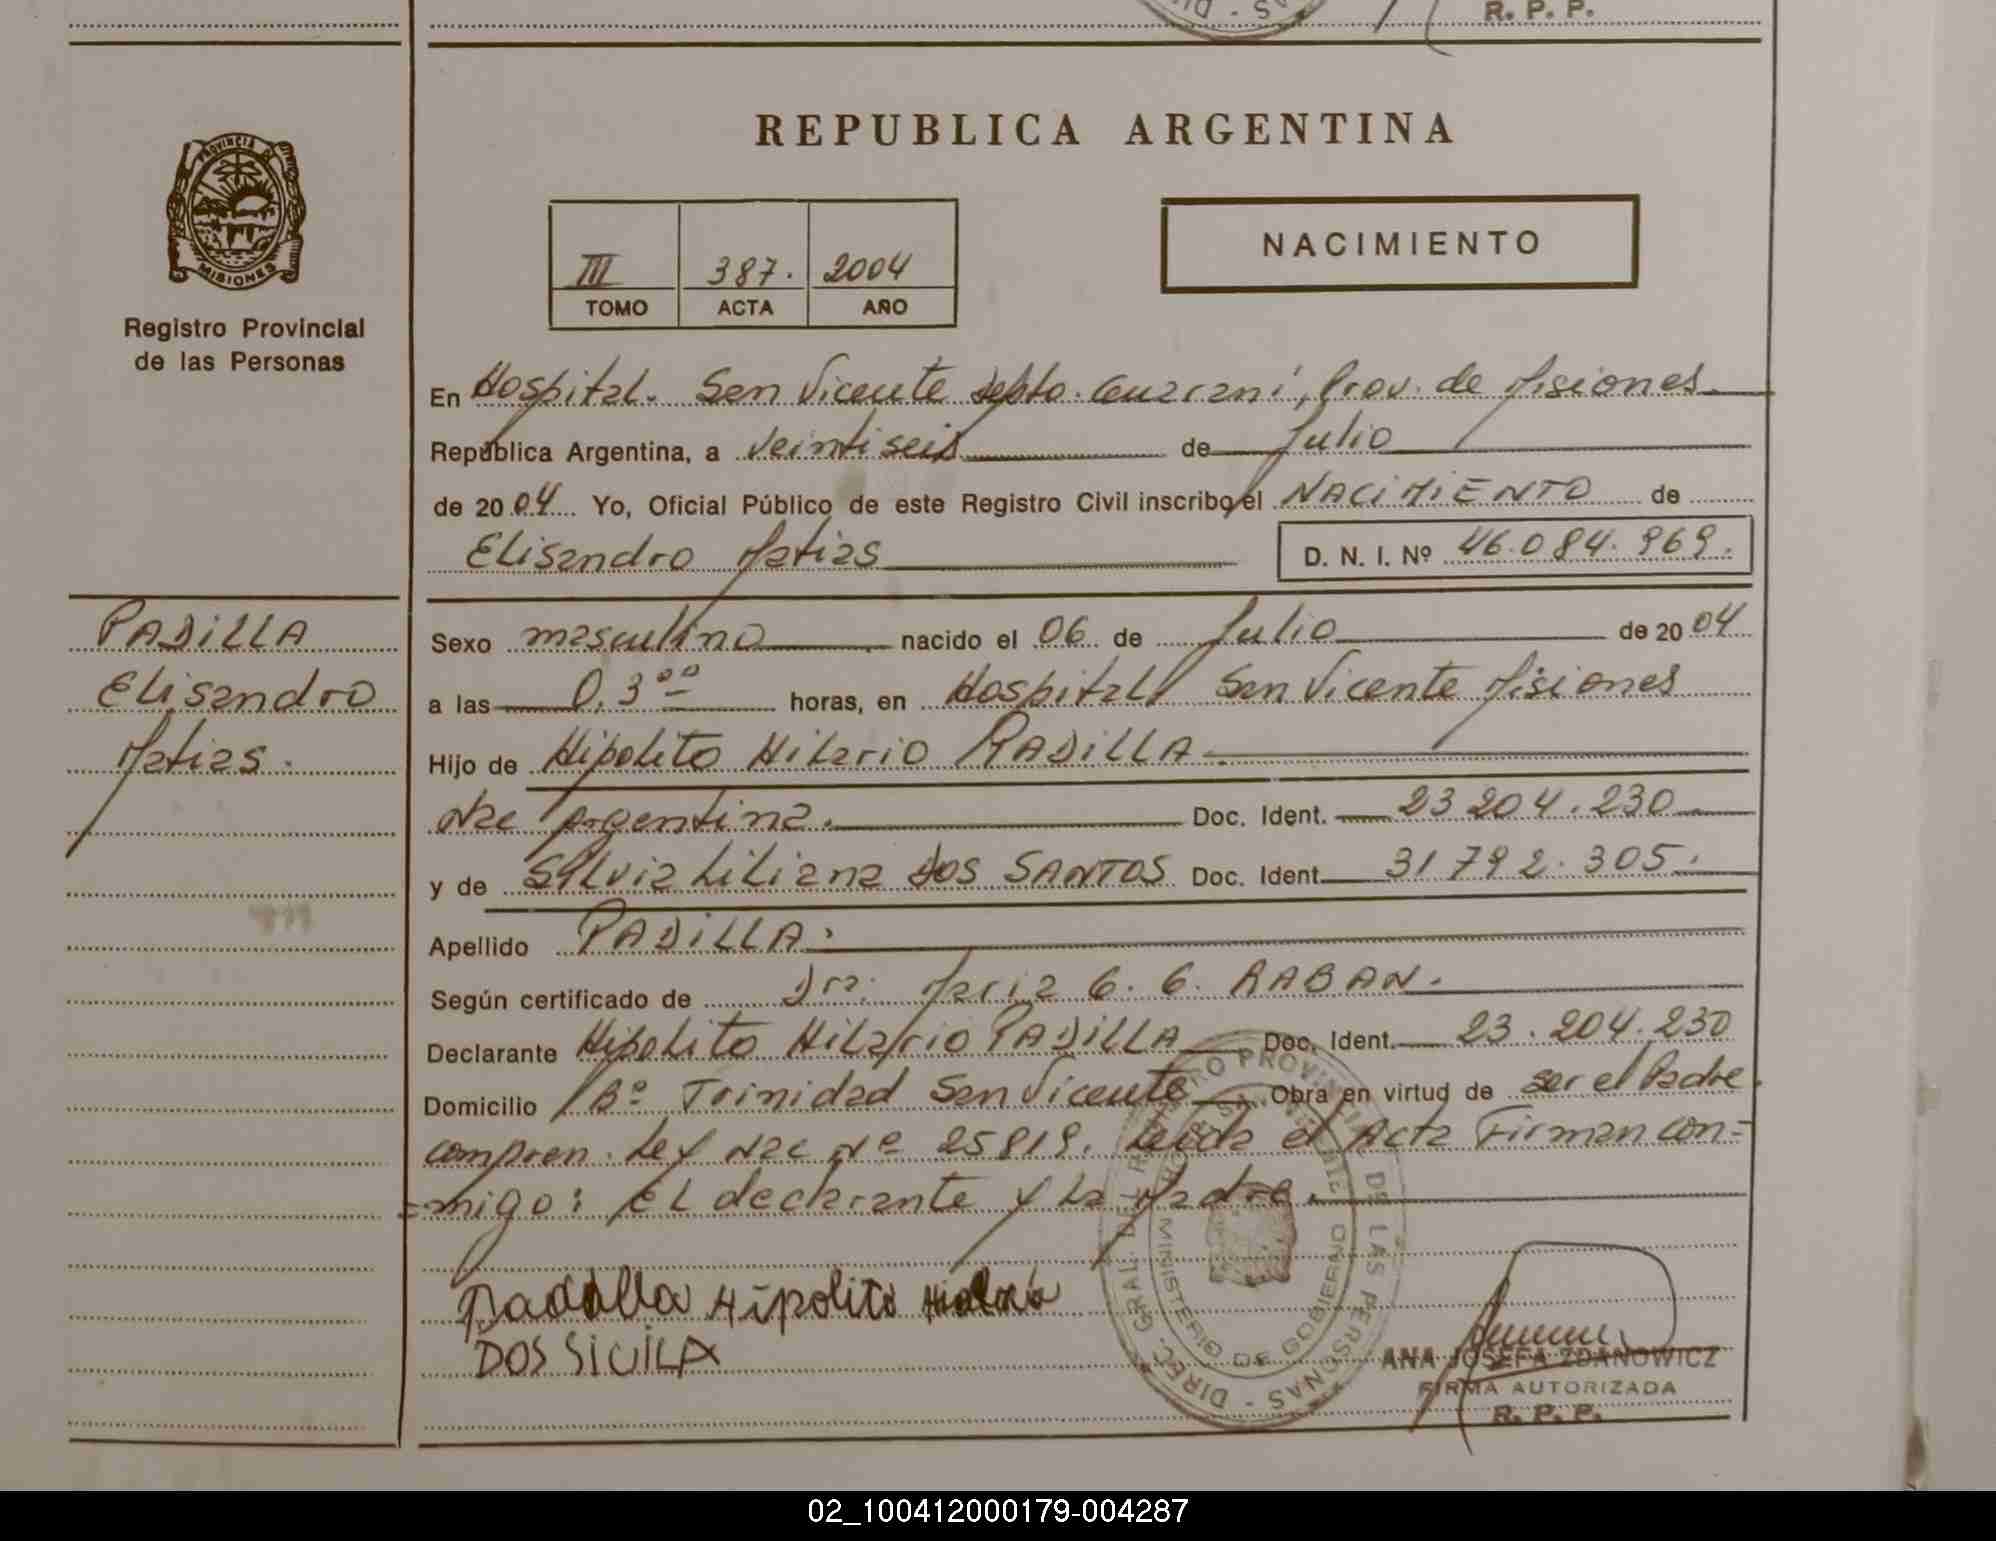 R. P. P.
REPUBLICA ARGENTINA
PROVINCIA DE
MISIONES
Registro Provincial
de las Personas
III 387. 2004
TOMO ACTA AÑO
NACIMIENTO
En Hospital. San Vicente Depto. Guarani, Prov. de Misiones.
República Argentina, a veintiseis de Julio
de 2004 Yo, Oficial Público de este Registro Civil inscribo el NACIMIENTO de
Elisandro Matias D. N. I. Nº 46.084.969.
PADILLA
Elisandro
Matias.
Sexo masculino nacido el 06 de Julio de 2004
a las 0.3°° horas, en Hospital San Vicente Misiones
Hijo de Hipolito Hilario PADILLA.
Nac Argentina. Doc. Ident. 23 204.230
y de Silvia Liliana DOS SANTOS Doc. Ident. 31 792.305.
Apellido PADILLA.
Según certificado de Dra. Maria G. G. RABAN.
Declarante Hipolito Hilario PADILLA Doc. Ident. 23.204.230
Domicilio Bº Trinidad San Vicente Obra en virtud de ser el Padre.
compren. Ley Nac Nº 25819. Leida el Acta Firman con=
=migo: el declarante y la Madre.
Padilla Hipolito
DOS SIVILA
DIREC. GRAL. DEL REGISTRO PROVINCIAL DE LAS PERSONAS -
MINISTERIO DE GOBIERNO
ANA JOSEFA ZDANOWICZ
FIRMA AUTORIZADA
R. P. P.
02_100412000179-004287